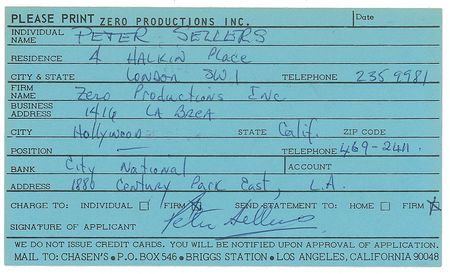 PLEASE PRINT ZERO PRODUCTIONS INC. Date
INDIVIDUAL NAME PETER SELLERS
RESIDENCE 4 HALKIN Place
CITY & STATE LONDON SW1 TELEPHONE 235 9981
FIRM NAME Zero Productions Inc
BUSINESS ADDRESS 1416 LA BREA
CITY Hollywood STATE Calif. ZIP CODE
POSITION — TELEPHONE 469-2411
BANK City National ACCOUNT
ADDRESS 1880 Century Park East, L.A.
CHARGE TO: INDIVIDUAL FIRM X SEND STATEMENT TO: HOME FIRM X
SIGNATURE OF APPLICANT Peter Sellers
WE DO NOT ISSUE CREDIT CARDS. YOU WILL BE NOTIFIED UPON APPROVAL OF APPLICATION.
MAIL TO: CHASEN'S • P.O. BOX 546 • BRIGGS STATION • LOS ANGELES, CALIFORNIA 90048